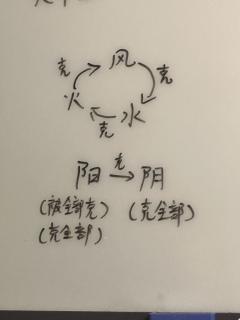 克 风 克
火 克 水
阳 克 阴
(被全部克) (克全部)
(克全部)